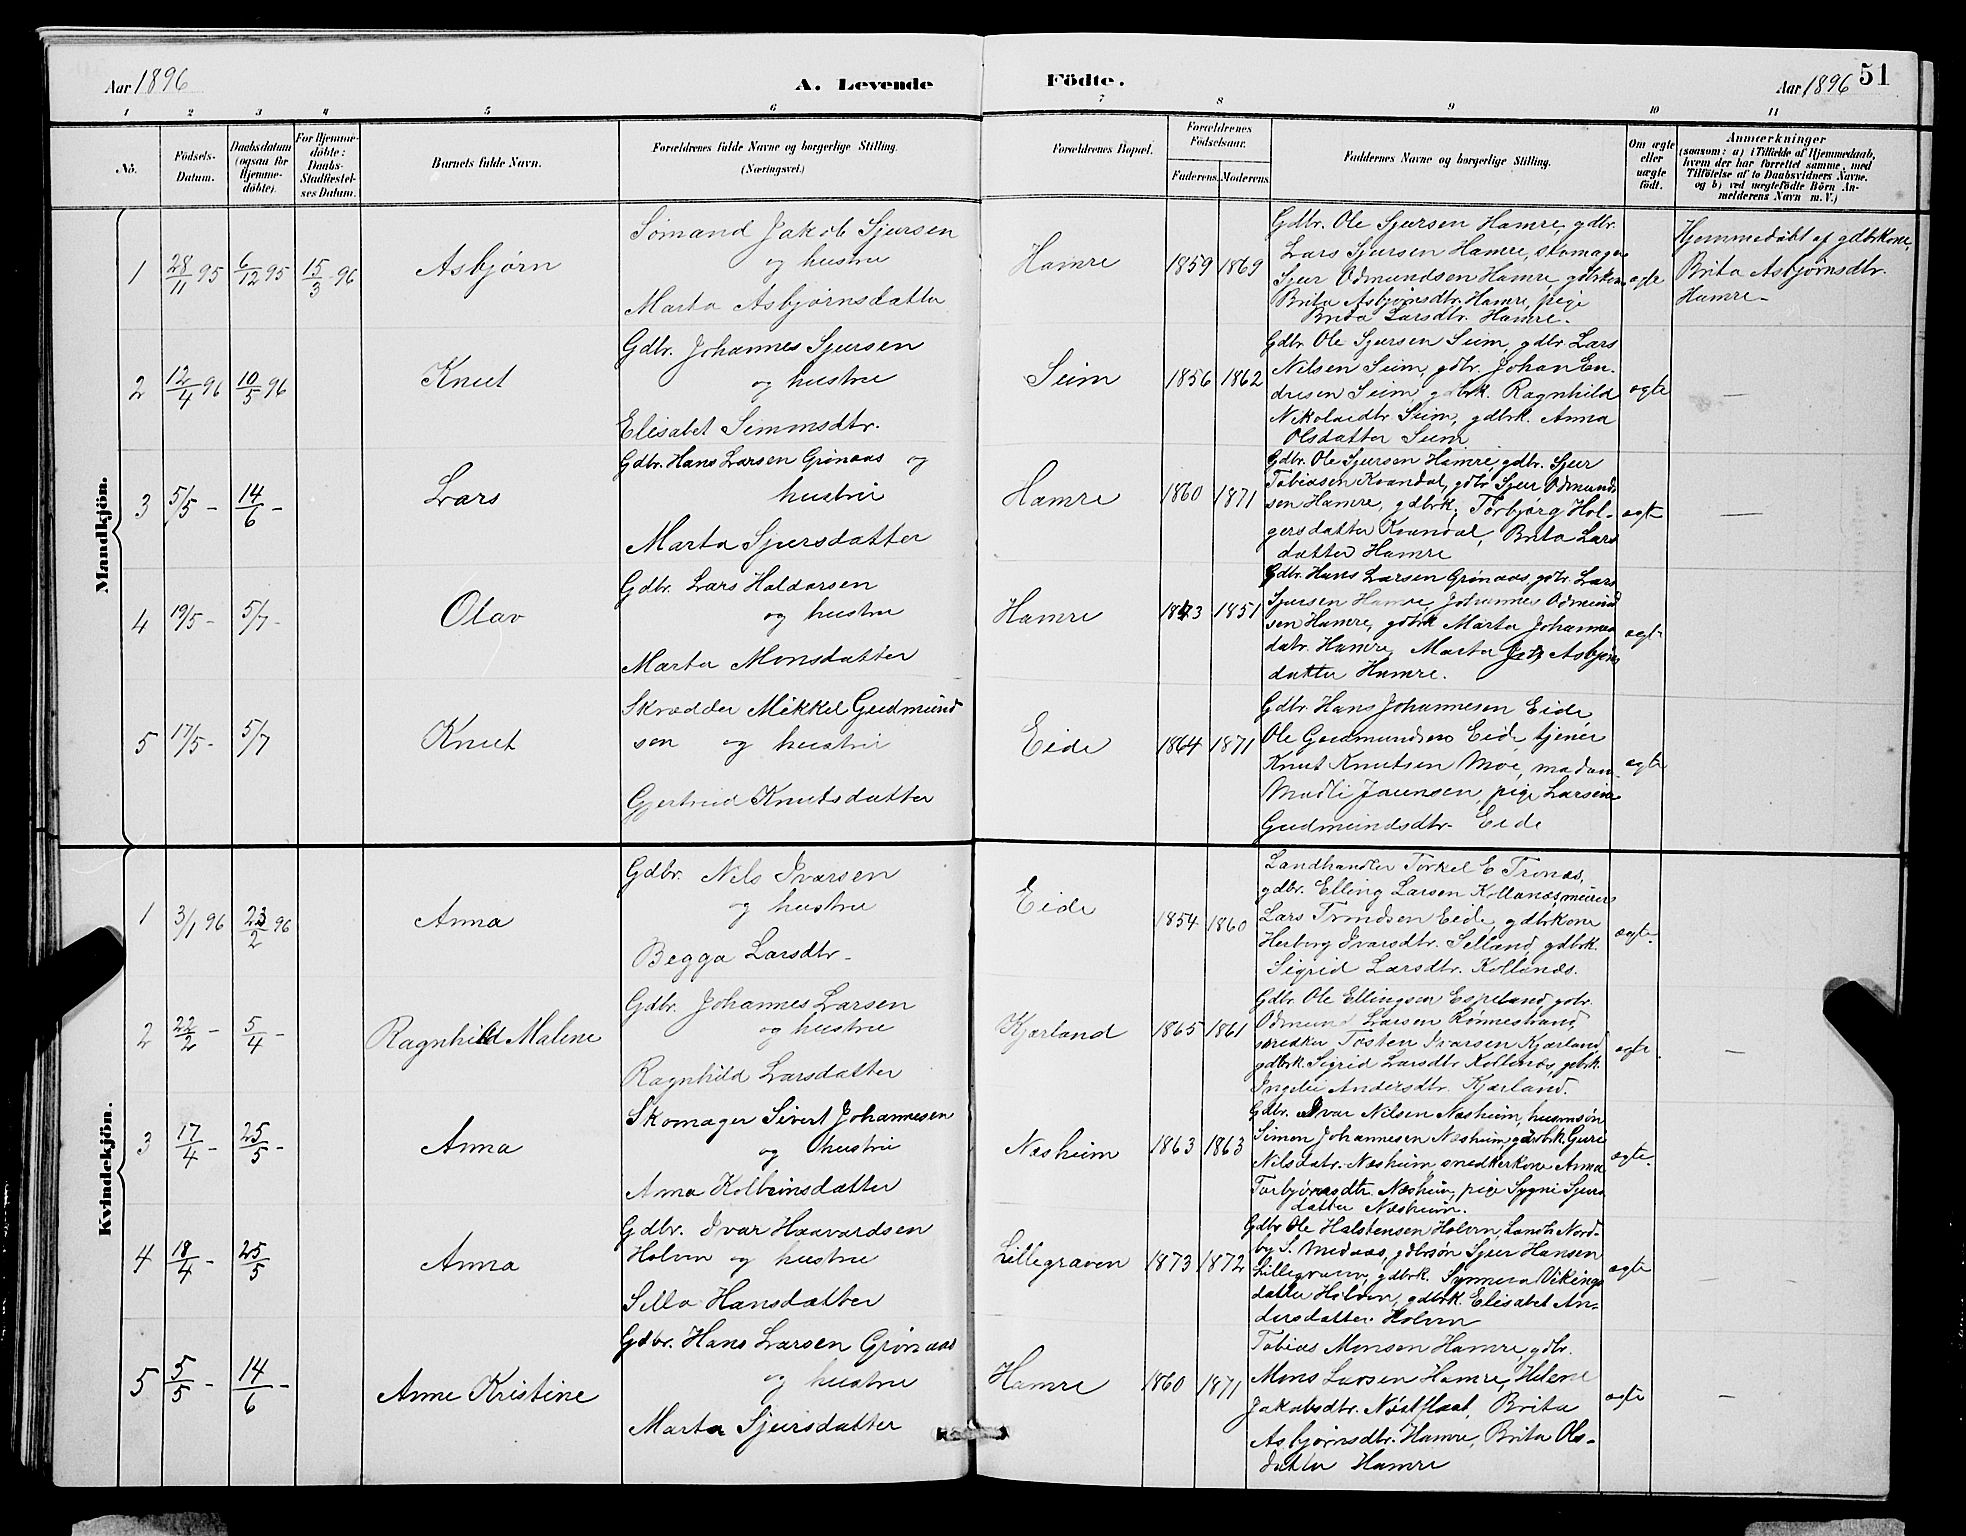 Aar 1896 A. Levende Födte. Aar 1896 51
1 2 3 4 5 6 7 8 9 10 11
No.
Födsels-
Datum.
Daabsdatum
(ogsaa for
Hjemme-
döbte).
For Hjemme-
döbte:
Daabs-
Stadfæstel-
ses Datum.
Barnets fulde Navn.
Forældrenes fulde Navne og borgerlige Stilling.
(Næringsvei.)
Forældrenes Bopæl.
Forældrenes
Födselsaar.
Faderens. Moderens.
Faddernes Navne og borgerlige Stilling.
Om ægte
eller
uægte
födt.
Anmærkninger
(saasom: a) i Tilfælde af Hjemmedaab,
hvem der har forrettet samme, med
Tilföielse af to Daabsvidners Navne.
og b) ved uægtefödte Börn An-
melderens Navn m. V.)
Mandkjön.
1 28/11 95 6/12 95 15/3 96 Asbjørn
Sømand Jakob Sjursen
og hustru
Marta Asbjørnsdatter
Hamre 1859 1869
Gdbr. Ole Sjursen Hamre, gdbr.
Lars Sjursen Hamre, skomager
Sjur Odmundsen Hamre, gdbrkone
Brita Asbjørnsdtr. Hamre, pige
Brita Larsdtr. Hamre.
ægte
Hjemmedøbt af gdbrkone,
Brita Asbjørnsdtr.
Hamre.
2 12/4 96 10/5 96 Knut
Gdbr. Johannes Sjursen
og hustru
Elisabet Simonsdtr.
Seim 1856 1862
Gdbr. Ole Sjursen Seim, gdbr. Lars
Nilsen Seim, gdbr. Johan En-
dresen Seim, gdbrk. Ragnhild
Nikolaidtr Seim, gdbrk. Anna
Olsdatter Seim
ægte —
3 5/5 - 14/6 - Lars
Gdbr. Hans Larsen Grønaas og
hustru
Marta Sjursdatter
Hamre 1860 1871
Gdbr. Ole Sjursen Hamre, gdbr. Sjur
Tobiassen Kvandal, gdbr Sjur Odmund-
sen Hamre, gdbrk. Torbjørg Hol-
gersdatter Kvandal, Brita Lars
datter Hamre
ægte —
4 19/5 - 5/7 - Olav
Gdbr. Lars Haldorsen
og hustru
Marta Monsdatter
Hamre 1843 1851
Gdbr. Hans Larsen Grønaas, gdbr. Lars
Sjursen Hamre, Johannes Odmund
sen Hamre, gdbrk Marta Johannes
datr. Hamre, Marta Asbjørns
datter Hamre.
ægte
5 17/5 - 5/7 Knut
Skrædder Mikkel Gudmund
sen og hustru
Gjertrud Knutsdatter
Eide 1864 1871
Gdbr. Hans Johannesen Eide,
Ole Gudmundsen Eide, tjener
Knut Knutsen Moe, madam
Madli Jaunsen, pige Larsina
Gudmundsdtr. Eide
ægte
Kvindekjön.
1 3/1 96 23/2 96 Anna
Gdbr. Nils Ivarsen
og hustru
Begga Larsdtr.
Eide 1854 1860
Landhandler Torkel E Tronæs,
gdbr. Elling Larsen Kollanæs, murer
Lars Trondsen Eide, gdbrkone
Herborg Ivarsdtr. Selland, gdbrk.
Sigrid Larsdtr. Kollanæs.
ægte.
2 22/2 - 5/4 - Ragnhild Malene
Gdbr. Johannes Larsen
og hustru
Ragnhild Larsdatter
Kjærland 1865 1861
Gdbr. Ole Ellingsen Espeland, gdbr.
Odmund Larsen Rønnestrand,
snedker Tosten Ivarsen Kjærland
gdbrk. Sigrid Larsdtr Kollenæs, gdbrk.
Ingelei Andersdtr. Kjærland.
ægte. —
3 17/4 - 25/5 - Anna
Skomager Sivert Johannesen
og hustru
Anna Kolbeinsdatter
Næsheim 1863 1863
Gdbr. Ivar Nilsen Næsheim, husmsøn
Simon Johannesen Næsheim, gdbrk. Guri
Nilsdatr. Næsheim, snedkerkone Anna
Torbjørnsdtr. Næsheim, pige Sygni Sjurs
datter Næsheim.
ægte.
4 18/4 - 25/5 Anna
Gdbr. Ivar Haavardsen
Holven og hustru
Silla Hansdatter
Lillegraven 1873 1872
Gdbr Ole Halstensen Holven, Landh. Nord-
by S. Medaas, gdbrsøn Sjur Hansen
Lillegraven, gdbrk. Synneva Vikings
datter Holven, gdbrk. Elisabet An-
dersdatter Holven
ægte —
5 5/5 - 14/6 - Anne Kristine
Gdbr. Hans Larsen Grønaas
og hustru
Marta Sjursdatter
Hamre 1860 1871
Tobias Monsen Hamre, gdbr.
Mons Larsen Hamre, Helene
Jakobsdtr. Nøstflaat, Brita
Asbjørnsdtr. Hamre, Brita Ols-
datter Hamre
ægte —